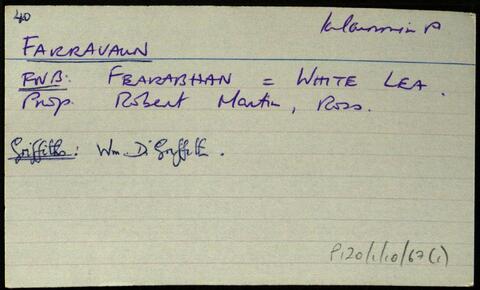 40
Kilcummin P
FARRAVAUN
FNB. FEARABHAN = WHITE LEA.
Prop. Robert Martin, Ross.
Griffiths: Wm. D. Griffith.
P120/1/10/67(1)